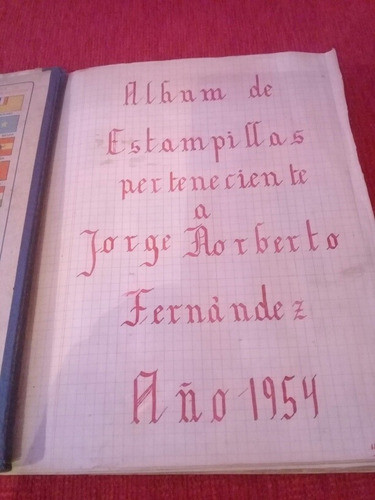 Album de
Estampillas
perteneciente
a
Jorge Norberto
Fernández
Año 1954